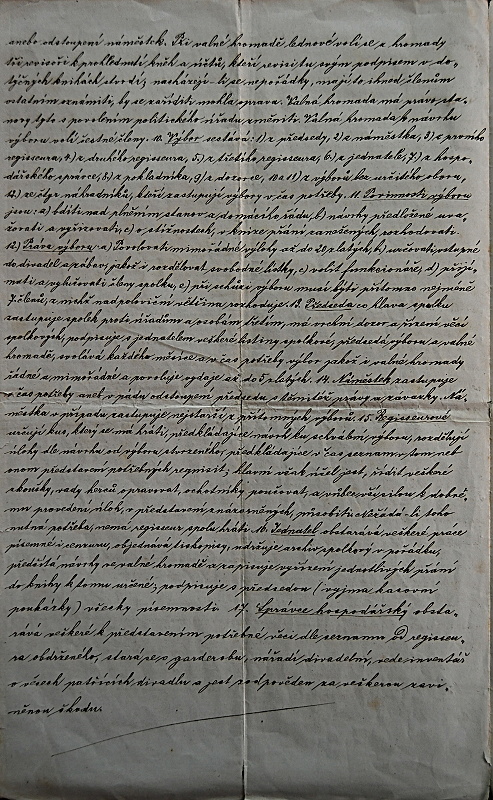 anebo odstoupení náměstek. Při valné hromadě lednové volí se z hromady
tři revisoři k prohlednutí knih a účtů, kteří revisi tu svým podpisem v do-
týčných knihách stvrdí; nacházejí-li se nepořádky, mají to ihned členům
ostatním oznámiti, by se zaříditi mohla oprava. Valná hromada má právo sta-
novy tyto s povolením politického úřadu změniti. Valná hromada k návrhu
výboru volí čestné členy. 10. Výbor sestává: 1) z předsedy, 2.) z náměstka, 3.) z prvního
regisseura, 4.) z druhého regisseura, 5.) z třetího regisseura, 6.) z jednatele, 7.) z hospo-
dářského správce, 8.) z pokladníka, 9.) z dozorce, 10 a 11.) z výborů bez určitého oboru,
12.) ze čtyř náhradníků, kteří zastupují výbory v čas potřeby. 11. Povinnosti výboru
jsou: a) bdíti nad plněním stanov a domácího řádu, b) návrhy předložené uva-
žovati a vyřizovati, c) o stížnostech, v knize přání zanešených, rozhodovati.
12.) Práva výboru: a) Povolovati mimořádné výlohy až do 20 zlatých, b) určovati vstupné
do divadel a zábav, jakož i rozdělovat svobodné lístky, c) voliti funkcionáře, d) přijí-
mati a vylučovati členy spolku, e) při schůzi výboru musí býti přítomno nejméně
7 členů, z nichž nadpoloviční většina rozhoduje. 13. Předseda co hlava spolku
zastupuje spolek proti úřadům a osobám třetím, má vrchní dozor a řízení věcí
spolkových, podpisuje s jednatelem veškeré listiny spolkové, předsedá výboru a valné
hromadě, svolává každého měsíce a v čas potřeby výbor jakož i valné hromady
řádné a mimořádné a povoluje vydaje až do 5 zlatých. 14. Náměstek zastupuje
v čas potřeby aneb v pádu odstoupení předsedu s témiž právy a závazky. Ná-
městka v případu zastupuje nejstarší z přítomných výborů. 15. Regisseurové
určují kus, který se má hráti, předkládajíce návrh ku schválení výboru, rozdělují
úlohy dle návrhu od výboru stvrzeného, předkládajíce v čas seznam v tom neb
onom představení potřebných requisit; hlavní však účel jest, říditi veškeré
zkoušky, vady herců opravovat, ochotníky poučovat, a vůbec vší silou k dobré-
mu provedení úloh, v představení znázorněných, působiti. Nežádá-li toho
nutná potřeba, nemá regisseur spolu hráti. 16. Jednatel obstarává veškeré práce
písemné i censuru, objednává tiskopisy, udržuje archiv spolkový v pořádku,
předčítá návrhy ve valné hromadě a zapisuje vyřízení jednotlivých přání
do knihy k tomu určené; podpisuje s předsedou (vyjma kasovní
poukázky) všecky písemnosti. 17. Správce hospodářský obsta-
rává veškeré k představením potřebné věci dle seznamu od regisseu-
ra obdrženého, stará se o garderobu, nářadí divadelní, vede inventář
o všech patřících divadlu a jest zodpověden za veškerou zavi-
něnou škodu.